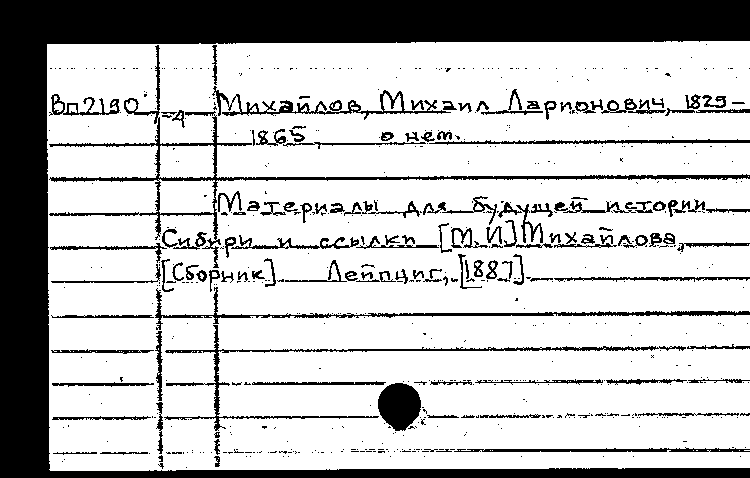 Вп2190 7-4 Михайлов, Михаил Ларионович, 1829–
1865, о нем.
Материалы для будущей истории
Сибири и ссылки [М.И] Михайлова,
[Сборник] Лейпциг, [1887].